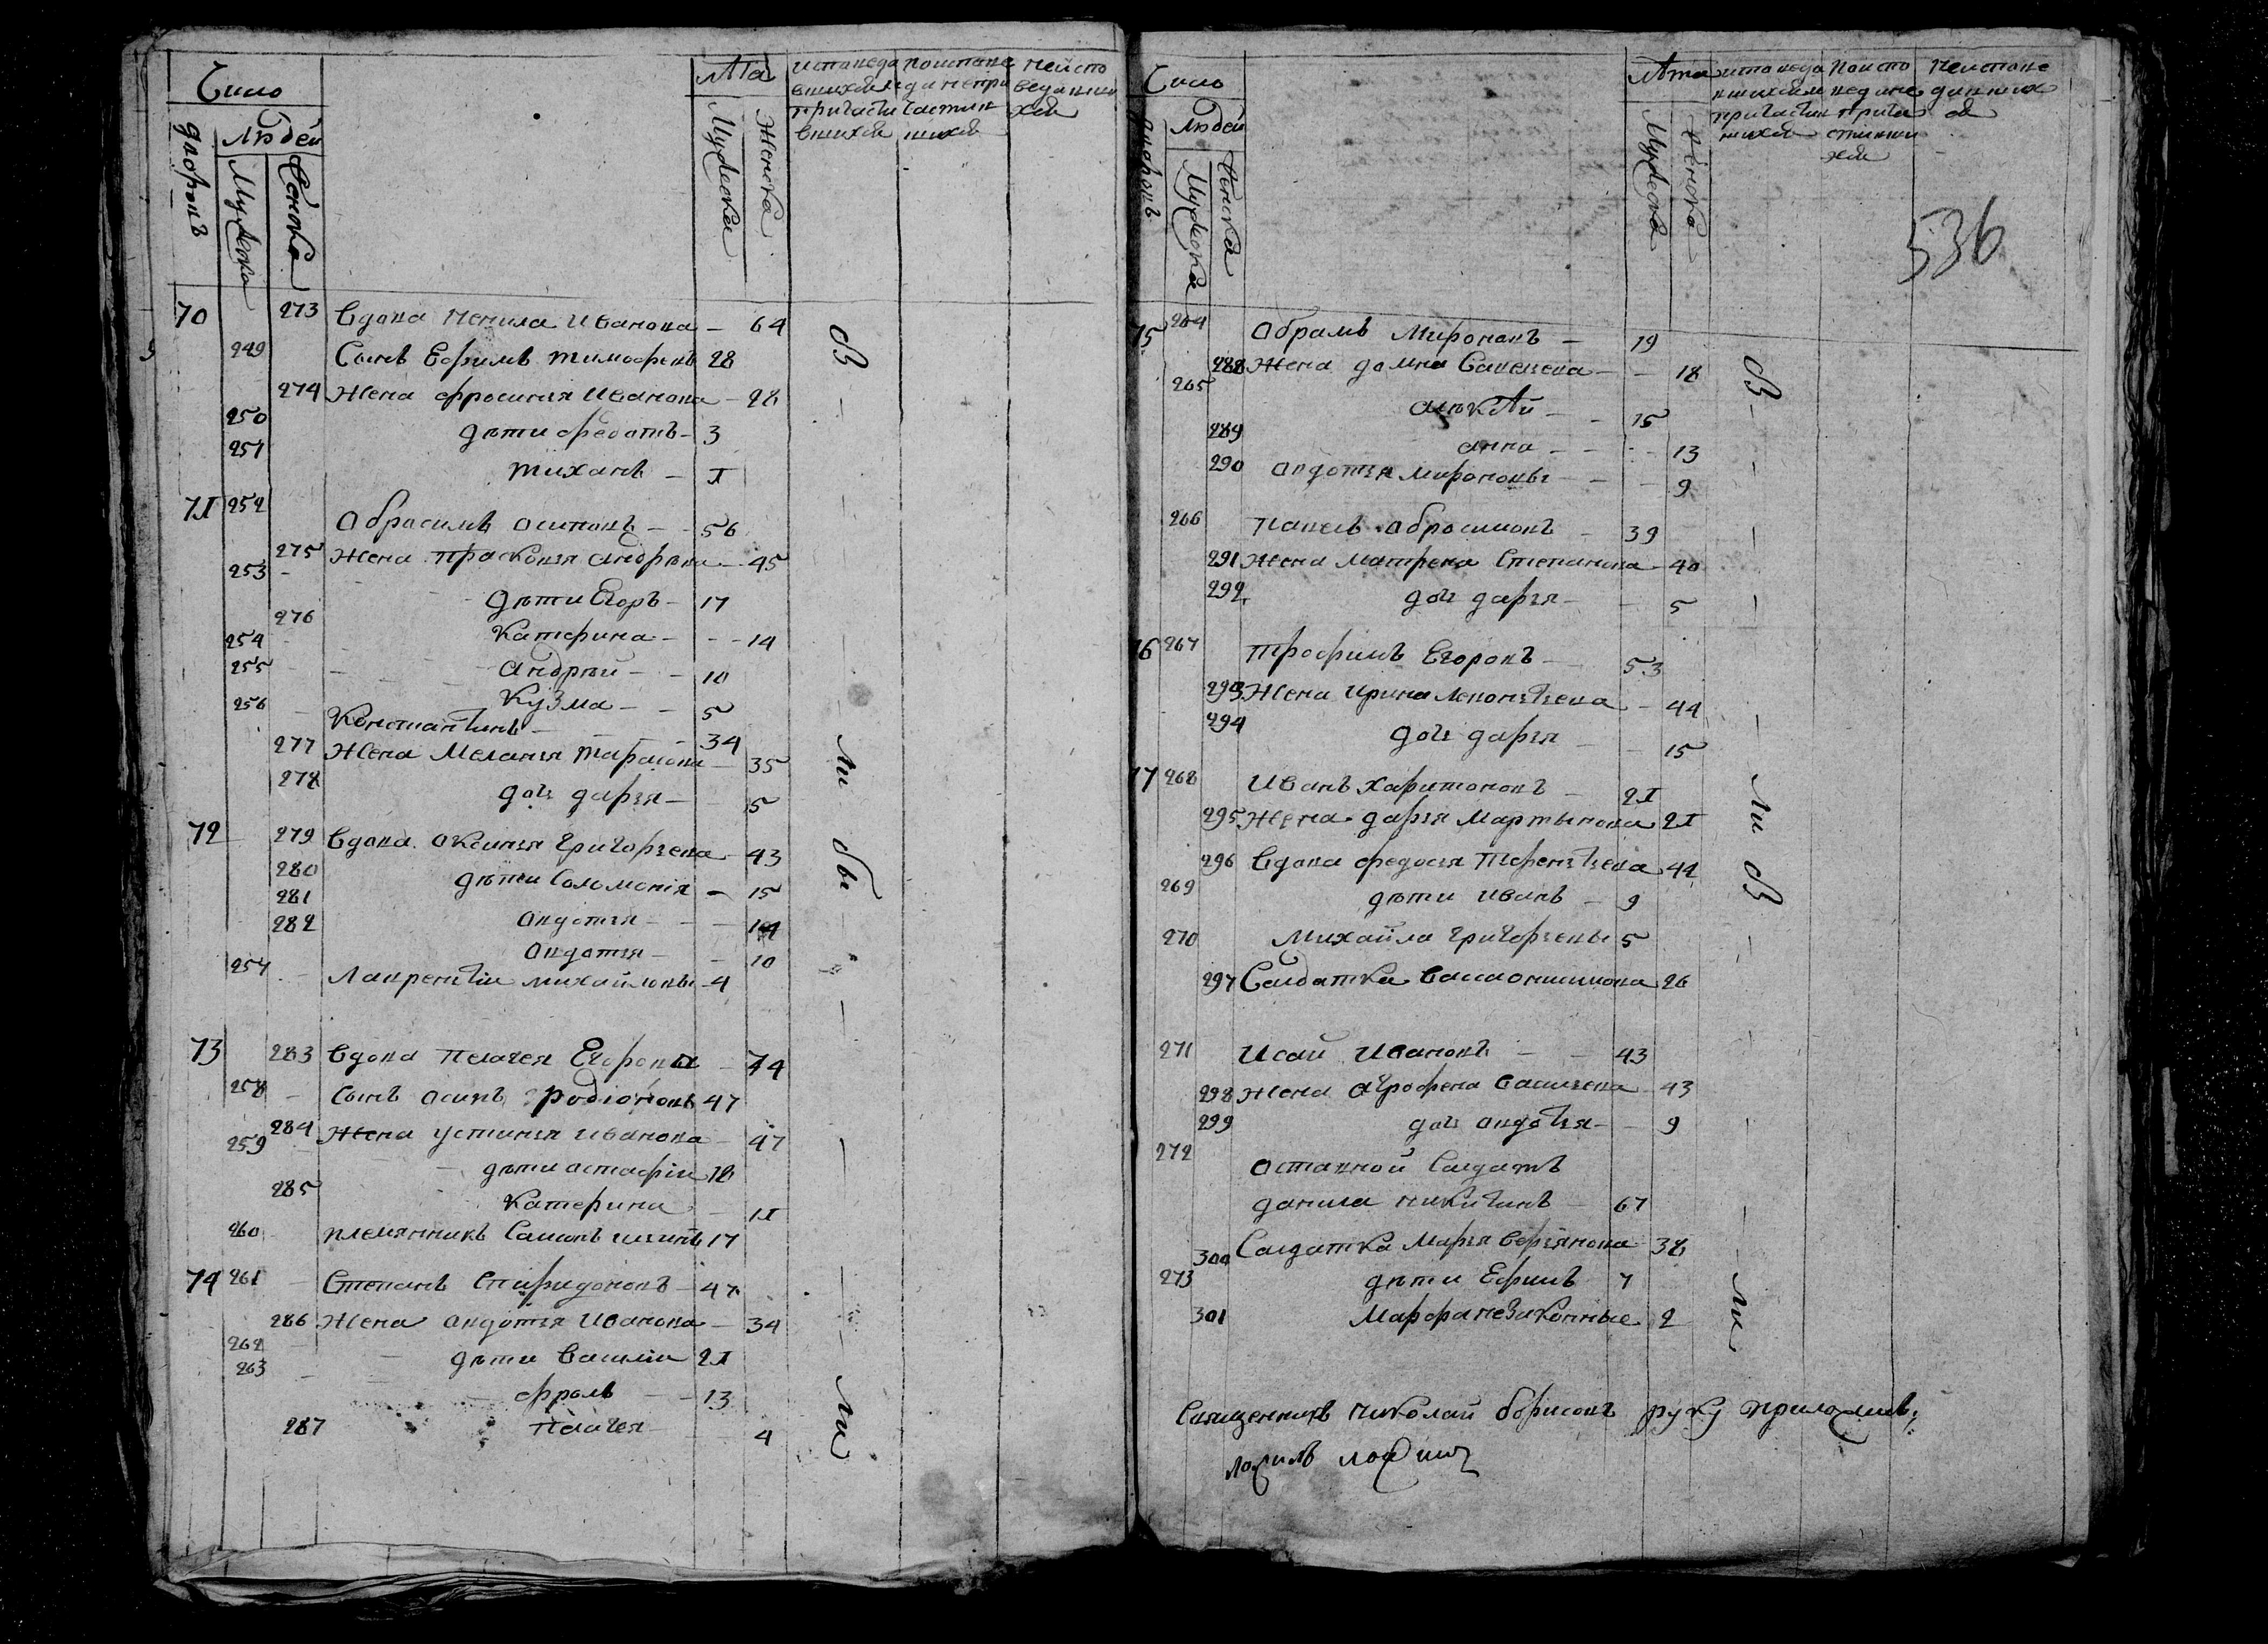 Число
Людей
Лѣта
дворовъ
Мужеска
Женска
Мужеска
Женска
исповеда
вшихся
причасти
вшихся
70 273 Вдова Ненила Иванова — 64
249 Сынъ Ефримъ Тимофеевъ 28
274 Жена Фросинья Иванова — 28
250 дѣти Федотъ — 3
251 Тиханъ — 1
71 252 Абросимъ Осиповъ — 56
275 Жена Прасковья Андрѣева — 45
253 дѣти Егоръ — 17
276 Катерина — 14
254 Андрѣй — 10
255 Кузма — 5
256 Константинъ — 34
277 Жена Меланья Тарасова — 35
278 дочь дарья — 5
72 279 Вдова Аксинья Григорьева — 43
280 дѣти Соломонія — 15
281 Авдотья — 14
282 Авдотья — 10
257 Лаврентіи Михайловы — 4
73 283 Вдова Пелагея Егорова — 74
258 Сынъ Осипъ Родіоновъ 47
284 Жена Устинья Иванова — 47
259 дѣти Астафіи 18
285 Катерина — 11
260 племянникъ 17
74 261 Степанъ Спиридоновъ — 47
286 Жена Авдотья Иванова — 34
262 дѣти Василіи 21
263 Фролъ — 13
287 Пелагея — 4
Число
Людей
Лѣта
дворовъ
Мужеска
Женска
Мужеска
Женска
536
75 264 Абрамъ Мироновъ — 19
288 Жена домна Савельева — 18
265 Алѣксѣй — 15
289 Анна — 13
290 Авдотья Мироновы — 9
266 Павелъ Абросимовъ — 39
291 Жена Матрена Степанова — 40
292 дочь дарья — 5
76 267 Трофимъ Егоровъ — 53
293 Жена Ирина Леонтьева — 44
294 дочь дарья — 15
77 268 Иванъ Харитоновъ — 21
295 Жена дарья Мартынова 21
296 Вдова Федосья Терентьева 42
269 дѣти Иванъ — 9
270 Михайла Григорьевы 5
297 Салдатка Васса Онисимова 26
271 Исаи Ивановъ — 43
298 Жена Агрофена Васильева — 43
299 дочь Авдотья — 9
272 Оставной Салдатъ
данила Никитинъ — 67
300 Салдатка Марья 38
273 дѣти Ефимъ 7
301 Марфа незаконные 2
Священникъ Николаи Борисовъ руку приложилъ;